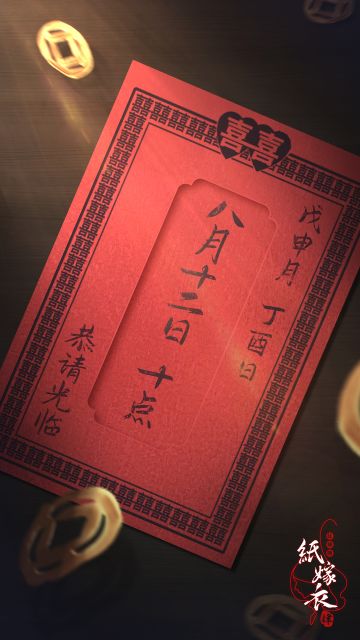 囍囍
戊申月 丁酉日
八月十二日 十点
恭请光临
紙嫁衣